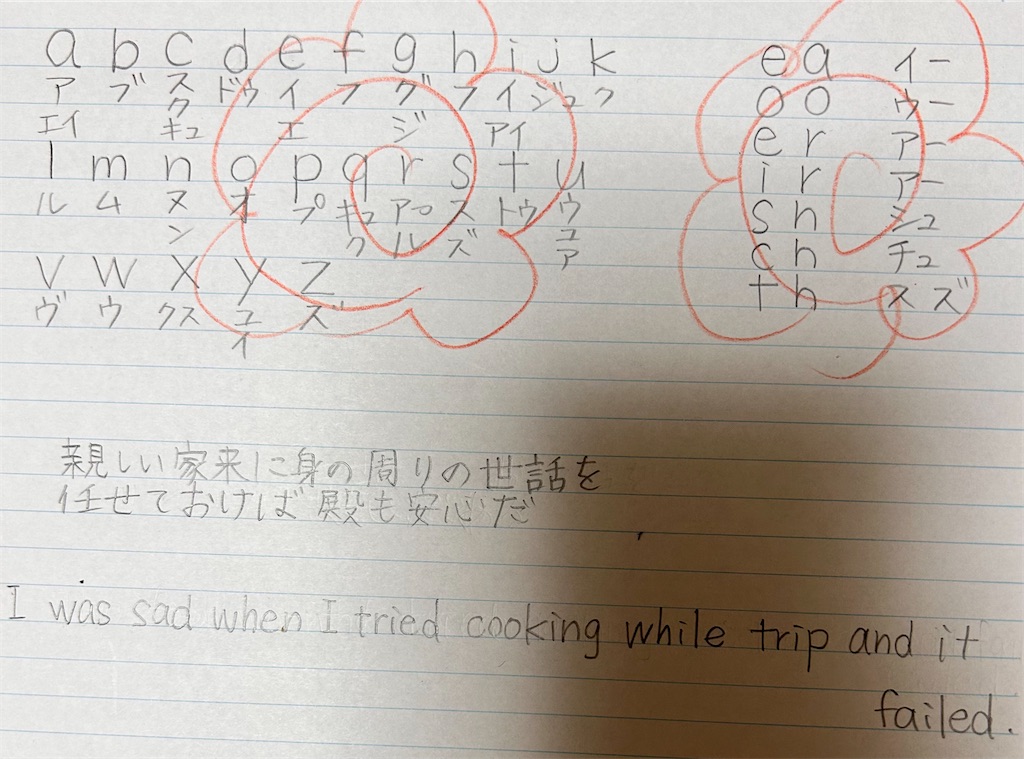 a b c d e f g h i j k
ア ブ ス ドゥ イ フ グ フ イ ジュ ク
エイ ク エ ジ アイ
キュ
l m n o p q r s t u
ル ム ヌ オ プ キュ アー ス トゥ ウ
ン ク ル ズ ユ
ア
v w x y z
ヴ ウ クス ユ ズ
イ
ea イー
oo ウー
er アー
ir アー
sh シュ
ch チュ
th ス ズ
親しい家来に身の周りの世話を
任せておけば殿も安心だ
I was sad when I tried cooking while trip and it
failed.